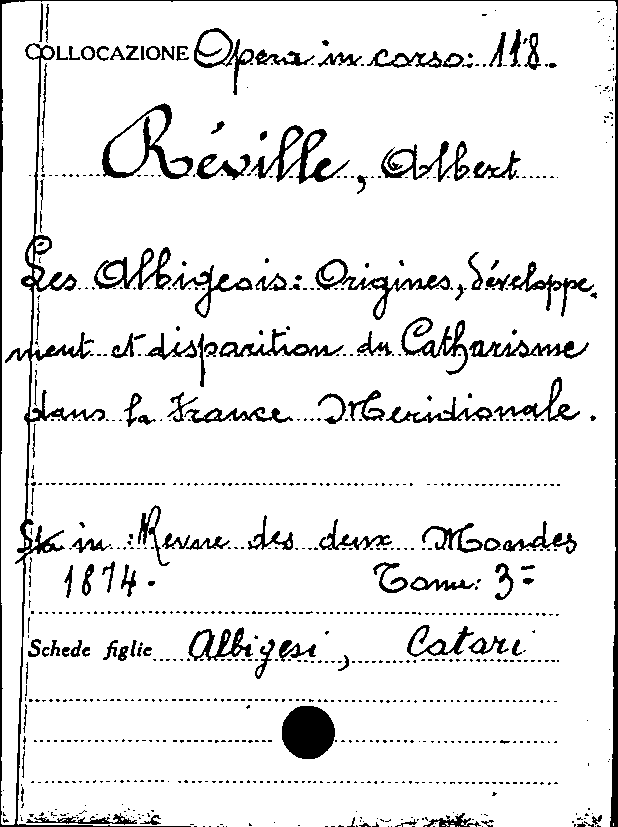 COLLOCAZIONE Opera in corso: 118.
Réville, Albert
Les Albigeois: Origines, développe-
ment et disparition du Catharisme
dans la France Méridionale.
Sta in: Revue des deux Mondes
1874. Tome: 3=
Schede figlie Albigesi, Catari